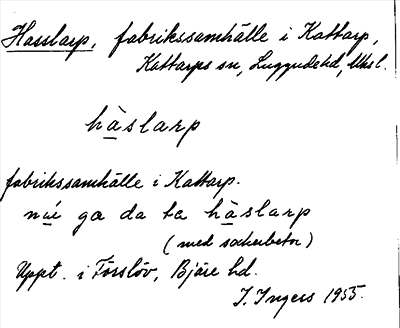 Hasslarp, fabrikssamhälle i Kattarp,
Kattarps sn, Luggude hd, Mhsl.
hàslarp
fabrikssamhälle i Kattarp.
nú ga da ta hàslarp
(med sockerbetor)
Uppt. i Förslöv, Bjäre hd.
I. Ingers 1955.